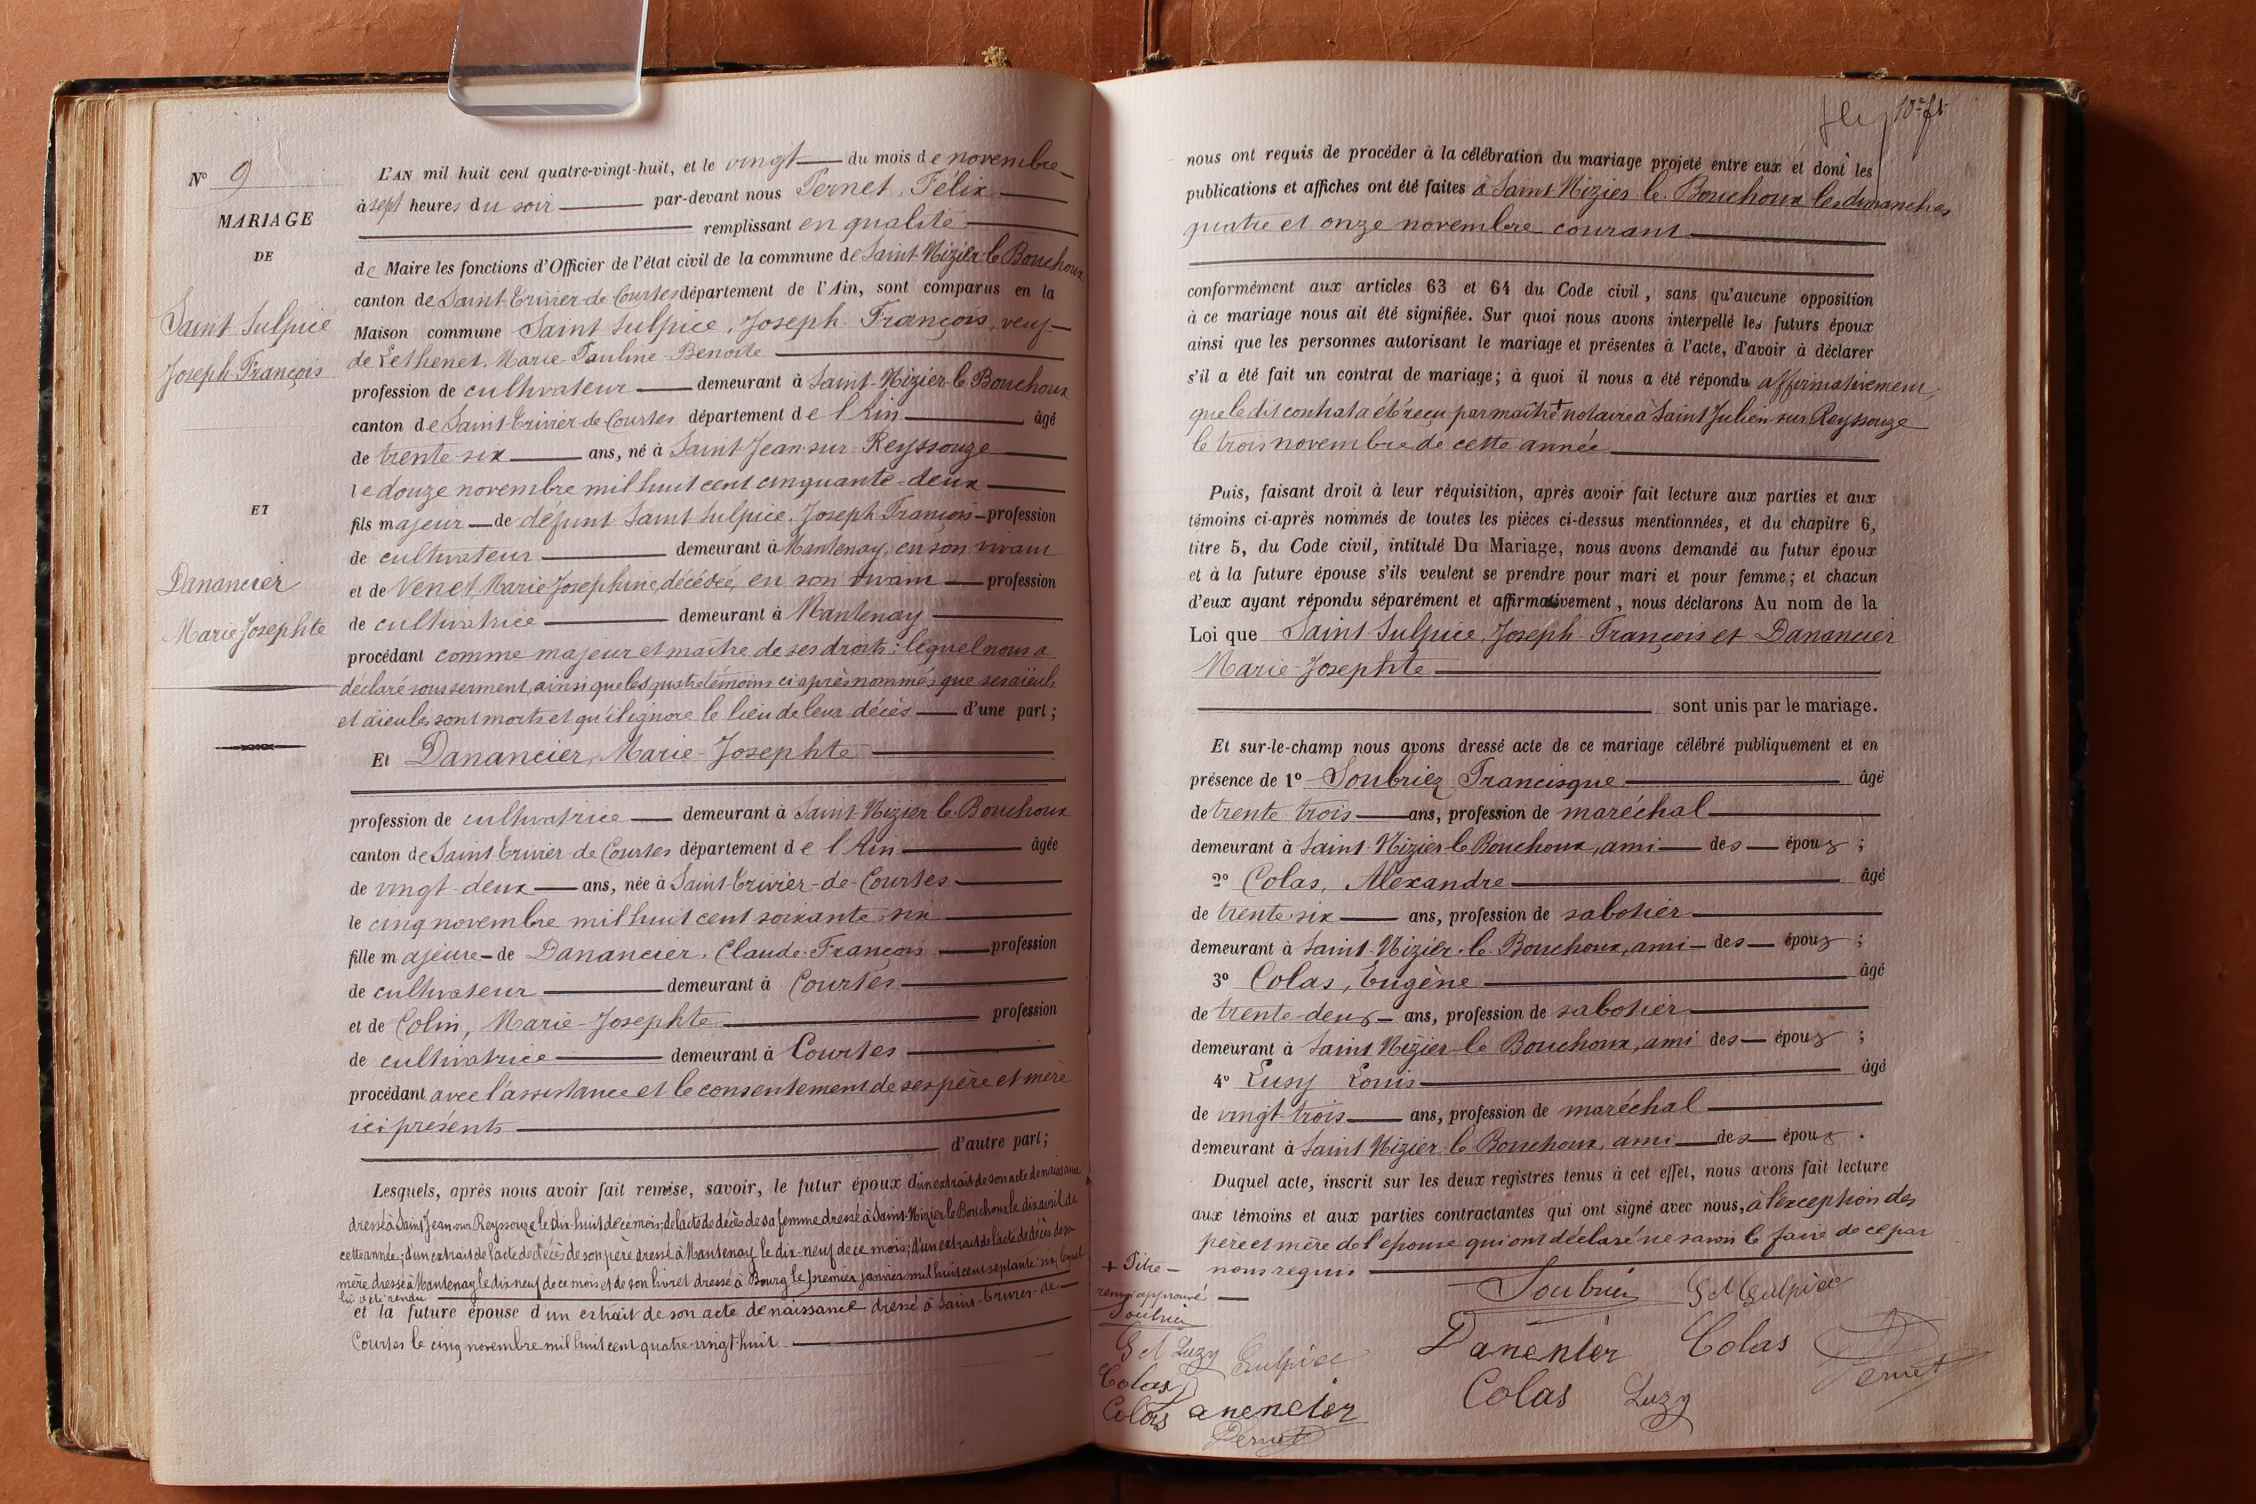 N° 9
MARIAGE
DE
Saint Sulpice
Joseph François
ET
Danancier
Marie Josephte
L'AN mil huit cent quatre-vingt-huit, et le vingt du mois de novembre
à sept heures du soir par-devant nous Pernet, Félix
remplissant en qualité
de Maire les fonctions d'Officier de l'état civil de la commune de Saint-Nizier-le-Bouchoux
canton de Saint-Trivier-de-Courtes département de l'Ain, sont comparus en la
Maison commune Saint Sulpice, Joseph François, veuf
de Lethenet, Marie-Pauline-Benoite
profession de cultivateur demeurant à Saint-Nizier-le-Bouchoux
canton de Saint-Trivier-de-Courtes département de l'Ain âgé
de trente-six ans, né à Saint-Jean-sur-Reyssouze
le douze novembre mil huit cent cinquante-deux
fils majeur de défunt Saint Sulpice, Joseph François profession
de cultivateur demeurant à Mantenay, en son vivant
et de Venet Marie Josephine, décédée, en son vivant profession
de cultivatrice demeurant à Mantenay
procédant comme majeur et maître de ses droits: lequel nous a
déclaré sous serment, ainsi que les quatre témoins ci-après nommés que ses aïeuls
et aïeules sont morts et qu'il ignore le lieu de leur décès d'une part;
Et Danancier, Marie-Josephte
profession de cultivatrice demeurant à Saint-Nizier-le-Bouchoux
canton de Saint-Trivier-de-Courtes département de l'Ain âgée
de vingt-deux ans, née à Saint-Trivier-de-Courtes
le cinq novembre mil huit cent soixante-six
fille majeure de Danancier, Claude-François profession
de cultivateur demeurant à Courtes
et de Colin, Marie-Josephte profession
de cultivatrice demeurant à Courtes
procédant avec l'assistance et le consentement de ses père et mère
ici présents
d'autre part;
Lesquels, après nous avoir fait remise, savoir, le futur époux d'un extrait de son acte de naissance
dressé à Saint Jean-sur-Reyssouze le dix-huit de ce mois; de l'acte de décès de sa femme dressé à Saint-Nizier-le-Bouchoux le dix avril de
cette année; d'un extrait de l'acte de décès de son père dressé à Mantenay le dix-neuf de ce mois; d'un extrait de l'acte de décès de sa
mère dressé à Mantenay le dix-neuf de ce mois et de son livret dressé à Bourg le premier janvier mil huit cent septante-six, lequel
lui a été rendu
et la future épouse d'un extrait de son acte de naissance dressé à Saint-Trivier-de-
Courtes le cinq novembre mil huit cent quatre-vingt-huit
nous ont requis de procéder à la célébration du mariage projeté entre eux et dont les
publications et affiches ont été faites à Saint-Nizier-le-Bouchoux les dimanches
quatre et onze novembre courant
conformément aux articles 63 et 64 du Code civil, sans qu'aucune opposition
à ce mariage nous ait été signifiée. Sur quoi nous avons interpellé les futurs époux
ainsi que les personnes autorisant le mariage et présentes à l'acte, d'avoir à déclarer
s'il a été fait un contrat de mariage; à quoi il nous a été répondu affirmativement,
que le dit contrat a été reçu par maître + notaire à Saint Julien-sur-Reyssouze
le trois novembre de cette année
Puis, faisant droit à leur réquisition, après avoir fait lecture aux parties et aux
témoins ci-après nommés de toutes les pièces ci-dessus mentionnées, et du chapitre 6,
titre 5, du Code civil, intitulé Du Mariage, nous avons demandé au futur époux
et à la future épouse s'ils veulent se prendre pour mari et pour femme; et chacun
d'eux ayant répondu séparément et affirmativement, nous déclarons Au nom de la
Loi que Saint Sulpice, Joseph François et Danancier
Marie-Josephte
sont unis par le mariage.
Et sur-le-champ nous avons dressé acte de ce mariage célébré publiquement et en
présence de 1° Soubriez Francisque âgé
de trente-trois ans, profession de maréchal
demeurant à Saint-Nizier-le-Bouchoux, ami des époux;
2° Colas, Alexandre âgé
de trente-six ans, profession de sabotier
demeurant à Saint-Nizier-le-Bouchoux, ami des époux;
3° Colas, Eugène âgé
de trente-deux ans, profession de sabotier
demeurant à Saint Nizier-le-Bouchoux, ami des époux;
4° Luzy Louis âgé
de vingt-trois ans, profession de maréchal
demeurant à Saint Nizier-le-Bouchoux, ami des époux.
Duquel acte, inscrit sur les deux registres tenus à cet effet, nous avons fait lecture
aux témoins et aux parties contractantes qui ont signé avec nous, à l'exception des
père et mère de l'épouse qui ont déclaré ne savoir le faire de ce par
nous requis
+ Pitre
renvoi approuvé
Soubriez
St Sulpice
Luzy
Colas
Colas
Danencier
Pernet
Soubriez
St Sulpice
Danencier
Colas
Pernet
Colas
Luzy